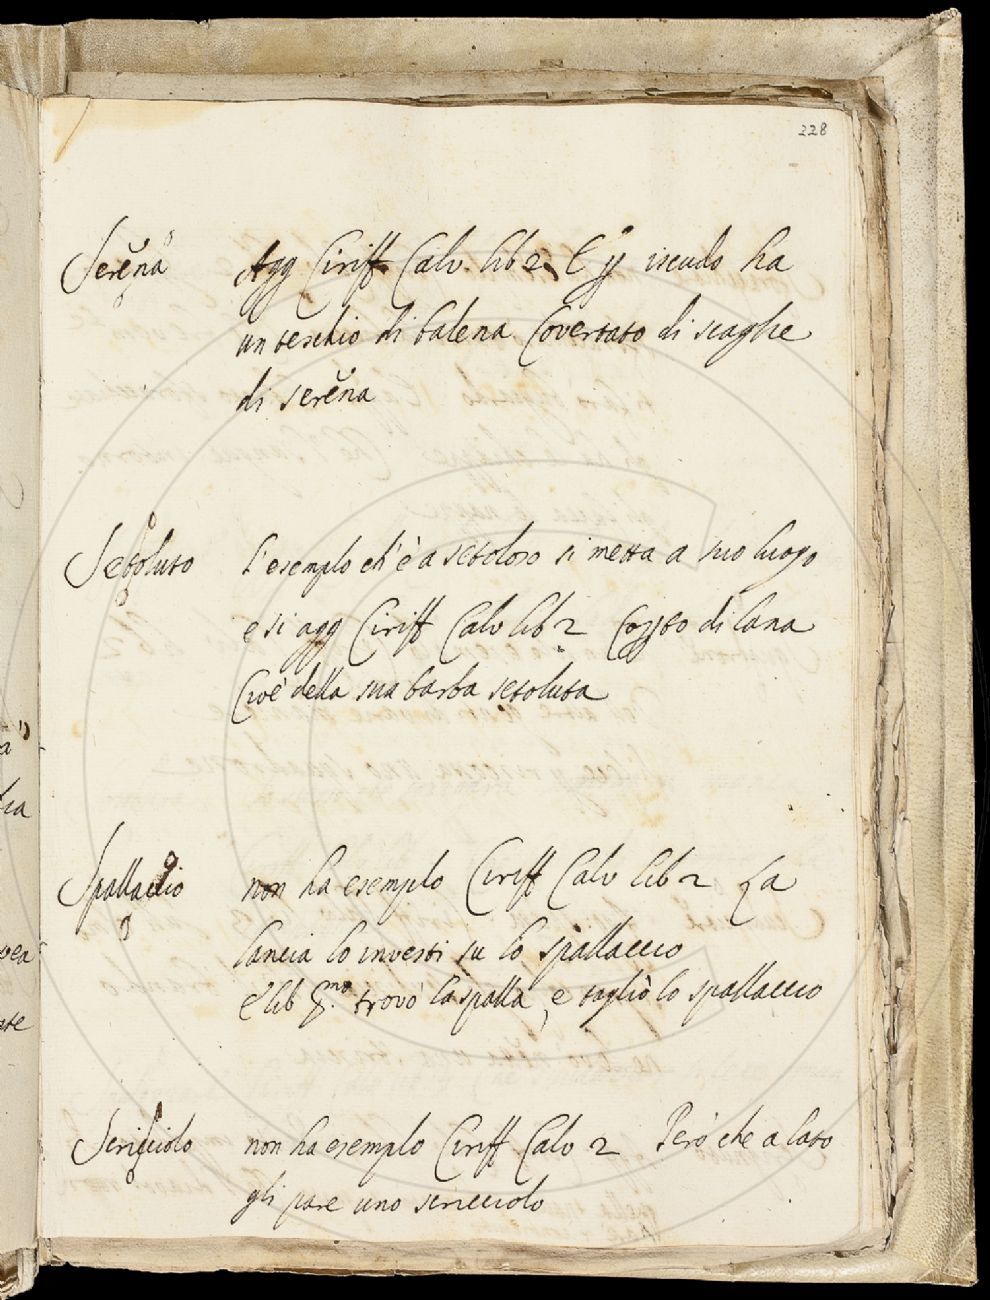 328
Serĕna Agg Ciriff Calv. lib 2 E p iscudo ha
un teschio di balena Covertato di scaglie
di serĕna
Setoluto L'esemplo ch'è a setoloso si metta a suo luogo
e si agg Ciriff Calv lib 2 di lana
Cioè della sua barba setoluta
Spallaccio non ha esemplo Ciriff Calv lib 2 La
lancia lo investì su lo spallaccio
E lib trovò la spalla, e tagliò lo spallaccio
Scricciolo non ha esemplo Ciriff Calv 2 Però che a lato
gli pare uno scricciolo